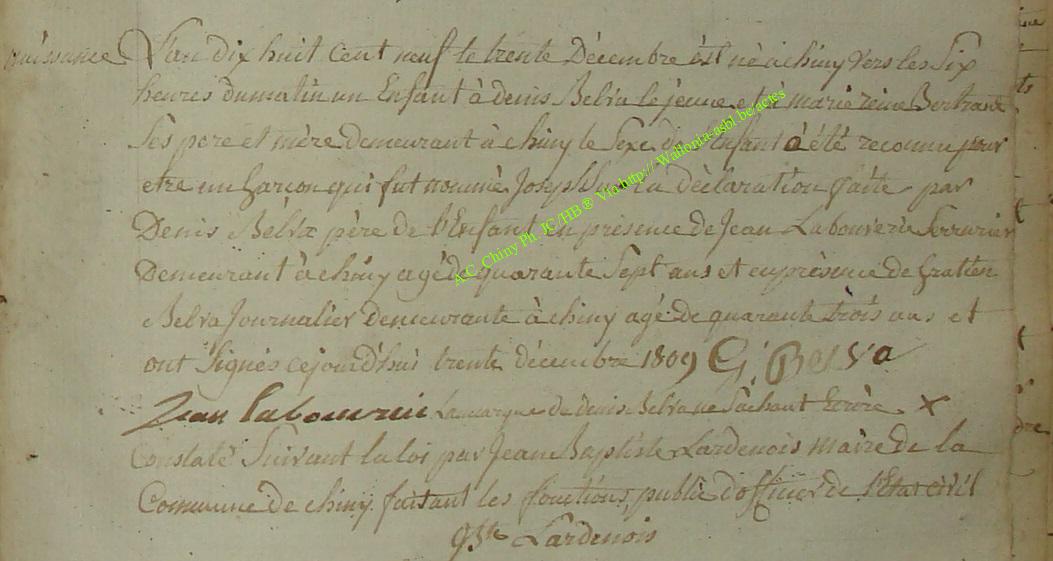 naissance L'an dix huit cent neuf le trente Décembre est né à chiny vers les Six
heures dumatin un Enfant à denis Belva le jeune et à marie reine Bertrand
Ses pere et mère demeurant à chiny le Sexe de l'Enfant a été reconnu pour
etre un garcon qui fut nommé Joseph Sur la dèclaration faite par
Denis Belva père de l'Enfant en présence de Jean Labouverie Serrurier
Demeurant à chiny agé de quarante Sept ans et en présence de gratien
Belva Journalier demeurante à chiny agé de quarante trois ans et
ont Signés cejourd'hui trente décembre 1809 G. Belva
Jean labouverie La marque de denis Belva ne Sachant Ecrire X
Constaté Suivant la loi par Jean Baptiste Lardenois maire de la
Commune de chiny faisant les fonctions public d'officier de l'Etat civil
Lardenois
A.C. Chiny Ph. JC/HB ® Via http:// Wallonia-asbl be/actes